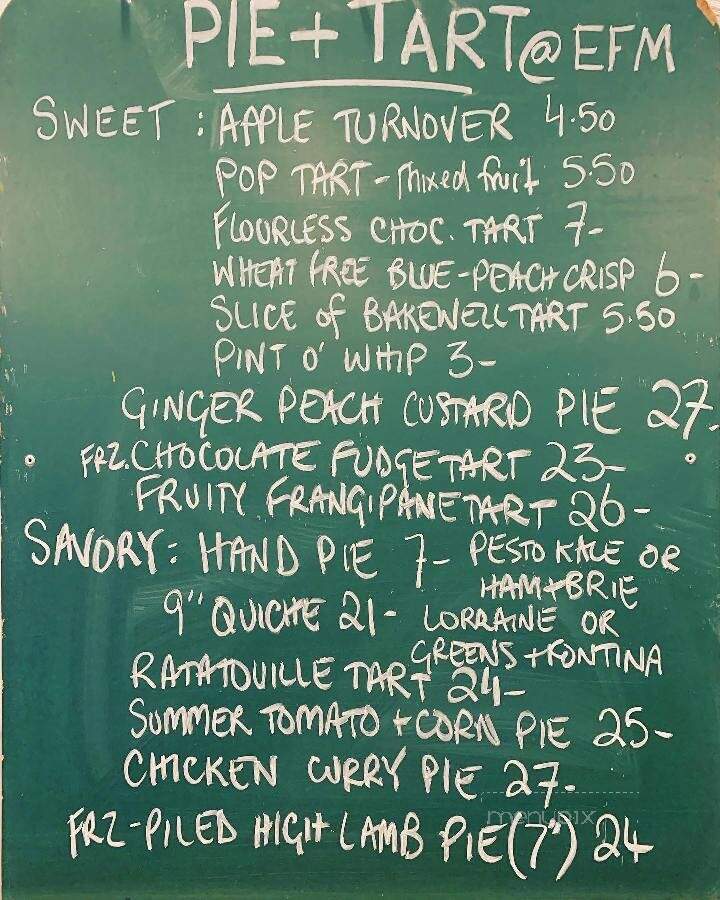 PIE + TART @ EFM
SWEET : APPLE TURNOVER 4.50
POP TART - mixed fruit 5.50
FLOURLESS CHOC. TART 7-
WHEAT FREE BLUE-PEACH CRISP 6-
SLICE of BAKEWELL TART 5.50
PINT O' WHIP 3-
GINGER PEACH CUSTARD PIE 27-
FRZ. CHOCOLATE FUDGE TART 23-
FRUITY FRANGIPANE TART 26-
SAVORY: HAND PIE 7- PESTO KALE OR
HAM + BRIE
9" QUICHE 21- LORRAINE OR
GREENS + FONTINA
RATATOUILLE TART 24-
SUMMER TOMATO + CORN PIE 25-
CHICKEN CURRY PIE 27-
menupix
FRZ-PILED HIGH LAMB PIE (7") 24